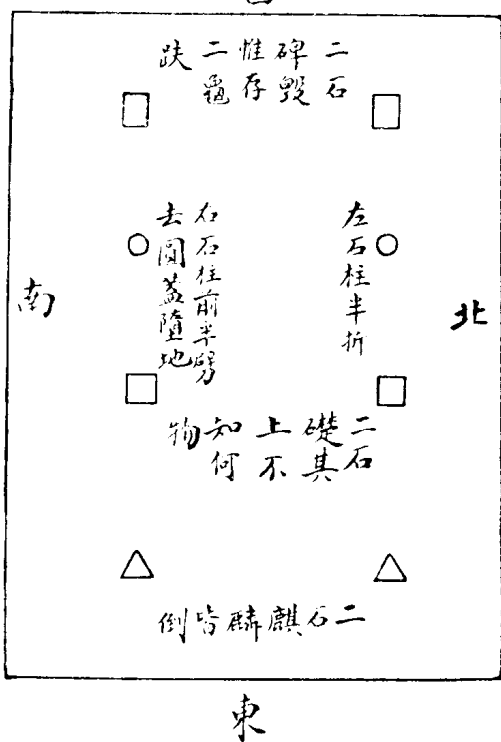 二石
碑毀
惟存
二龜
趺
左石柱半折
右石柱前半劈
去圓蓋墮地
北
南
二石
礎其
上不
知何
物
二石麒麟皆倒
東